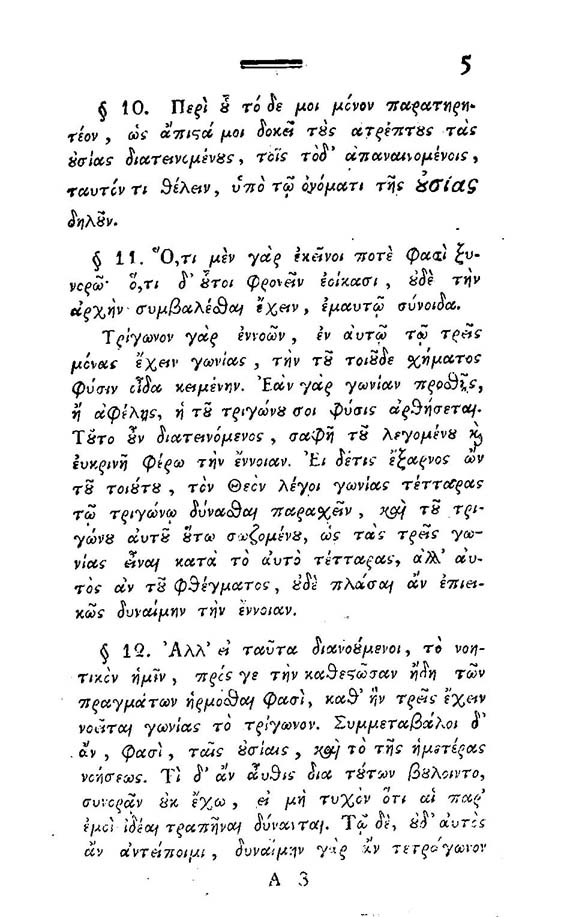 5
§ 10. Περὶ ȣ̓͂ τό δε μοι μόνον παρατηρη-
τέον, ὡς ἄπιϛά μοι δοκεῖ τȣ̀ς ατρέπτȣς τὰς
ȣ̓σίας διατεινομένȣς, τοῖς τὸδ' ἀπαναινομένοις,
ταυτόν τι θέλειν, ὑπὸ τῷ ὀνόματι τῆς ȣ̓σίας
δηλȣ͂ν.
§ 11. Ὅ,τι μὲν γὰρ ἐκεῖνοι ποτὲ φασὶ ξυ-
νορῶ· ὅ,τι δ' ȣ̔͂τοι φρονεῖν ἐοίκασι, ȣ̓δὲ τὴν
ἀρχὴν συμβαλέσθαι ἔχειν, ἐμαυτῷ σύνοιδα.
Τρίγωνον γὰρ ἐννοῶν, ἐν αυτῷ τῷ τρεῖς
μόνας ἔχειν γωνίας, τὴν τȣ͂ τοιȣ͂δε χήματος
φύσιν οἶδα κειμένην. Ἐὰν γὰρ γωνίαν προσθῇς,
ἢ ἀφέλῃς, ἡ τȣ͂ τριγώνȣ σοι φύσις ἀρθήσεται.
Τȣ͂το ȣ̓͂ν διατεινόμενος, σαφῆ τȣ͂ λεγομένȣ ϗ
ἐυκρινῆ φέρω τὴν ἔννοιαν. Ἐι δέτις ἔξαρνος ὢν
τȣ͂ τοιύτȣ, τὸν Θεὸν λέγοι γωνίας τέτταρας
τῷ τριγώνῳ δύνασθαι παραχεῖν, καὶ τȣ͂ τρι-
γώνȣ αυτȣ͂ ȣ̔́τω σωζομένȣ, ὡς τὰς τρεῖς γω-
νίας εἶναι κατὰ τὸ ἀυτὸ τέτταρας, ἀλλ' ἀυ-
τὸς ἂν τȣ͂ φθέγματος, ȣ̓δὲ πλάσαι ἂν ἐπιει-
κῶς δυναίμην τὴν ἔννοιαν.
§ 12. Ἀλλ' εἰ ταῦτα διανούμενοι, τὸ νοη-
τικὸν ἡμῖν, πρός γε τὴν καθεϛῶσαν ἤδη τῶν
πραγμάτων ἡρμόσθαι φασὶ, καθ' ἣν τρεῖς ἔχειν
νοεῖται γωνίας τὸ τρίγωνον. Συμμεταβάλοι δ'
ἂν, φασὶ, ταῖς ȣ̓σίαις, καὶ τὸ τῆς ἡμετέρας
νοήσεως. Τὶ δ' ἂν ἆυθις δια τȣ́των βȣ́λοιντο,
συνορᾷν ȣ̓κ ἔχω, εἰ μὴ τυχὸν ὅτι αἱ παρ'
ἐμοὶ ἰδέαι τραπῆναι δύνανται. Τῷ δὲ, ȣ̓δ' αὐτὸς
ἂν ἀντείποιμι, δυναίμην γὰρ ἂν τετράγωνον
A 3